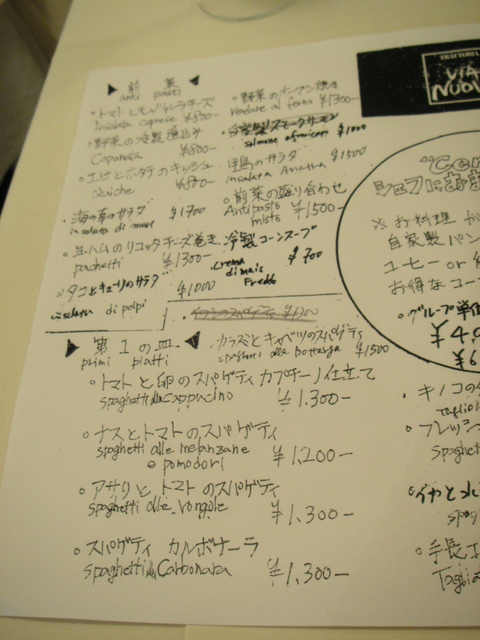 TRATTORIA
VIA
NUOVA
前菜
anti pasti
トマトとモッツァレラチーズ
Insalata caprese ¥800-
野菜の冷製煮込み
Caponata ¥800-
エビとホタテのキッシュ
¥800-
海の幸のサラダ ¥1700
insalata di mare
生ハムのリコッタチーズ巻き
¥1300-
タコとキューリのサラダ
insalata di polpi ¥1000
野菜のオーブン焼き
verdure al forno ¥1300-
自家製スモークサーモン
salmone affumicato ¥1000
サラダ
insalata ¥1500
前菜の盛り合わせ
Antipasto misto ¥1500-
冷製コーンスープ
crema di mais freddo ¥700
第1の皿
primi piatti
カラスミとキャベツのスパゲティ
spaghetti alla bottarga ¥1500
トマトと卵のスパゲティ カプチーノ仕立て
spaghetti Cappucino ¥1.300-
ナスとトマトのスパゲティ
spaghetti alle melanzane
e pomodori ¥1.200-
アサリとトマトのスパゲティ
spaghetti alle vongole ¥1.300-
スパゲティ カルボナーラ
spaghetti Carbonara ¥1.300-
"Cen
シェフにおま
※お料理が
自家製パン
コーヒー or
お得なコー
グループ単位
キノコの
フレッシュ
spaghe
イカと
spag
手長エ
Taglia